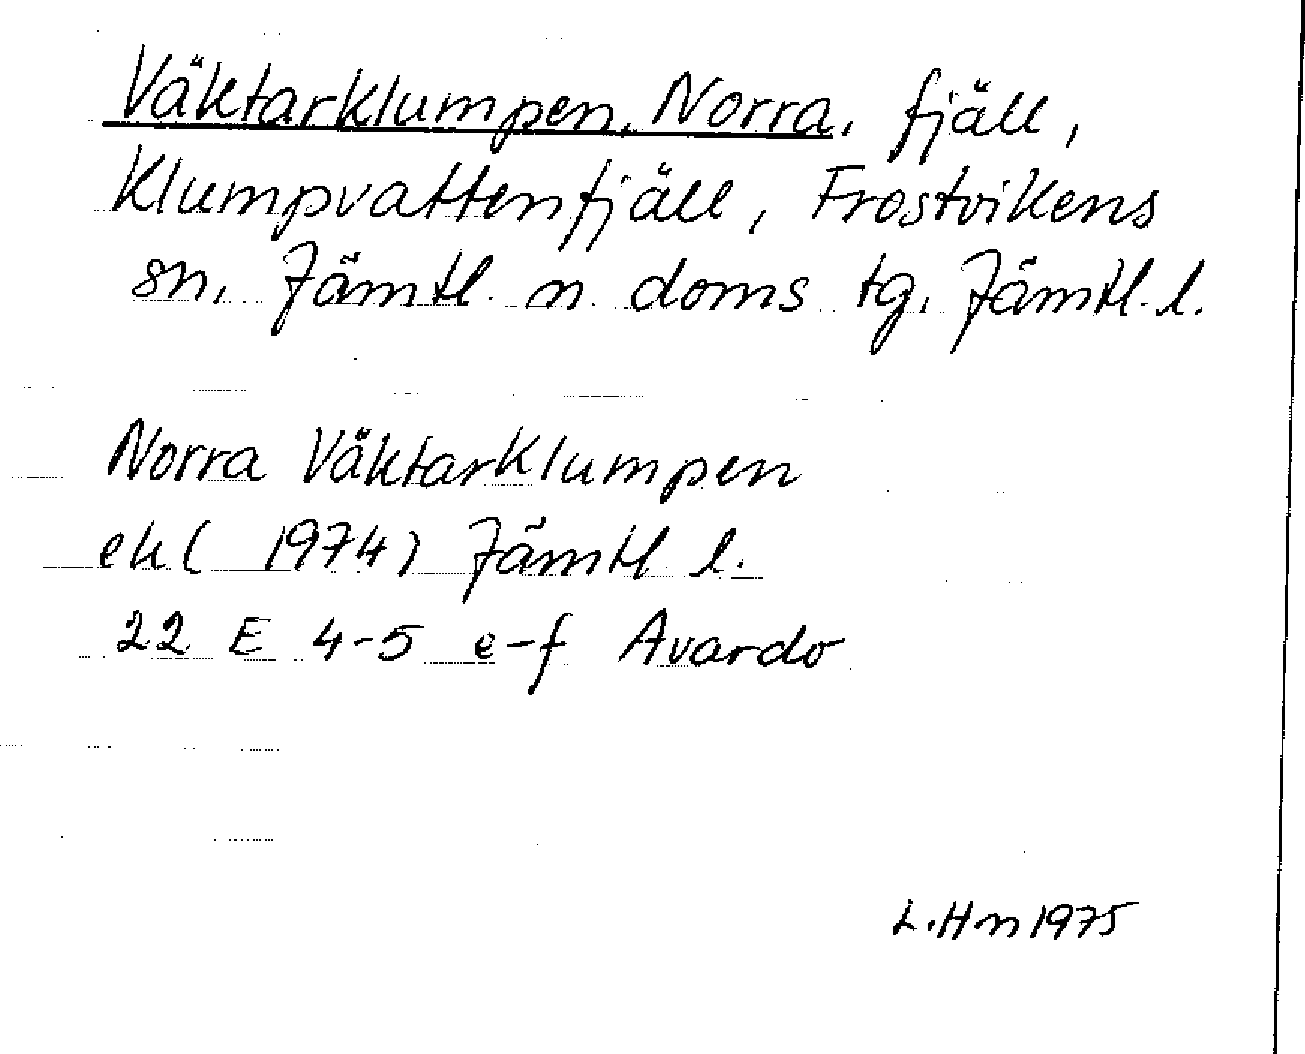 Väktarklumpen, Norra, fjäll,
Klumpvattenfjäll, Frostvikens
sn, Jämtl n doms tg, Jämtl. l.
Norra Väktarklumpen
ek (1974) Jämtl l.
22 E 4-5 e-f Avardo
L.Hn 1975